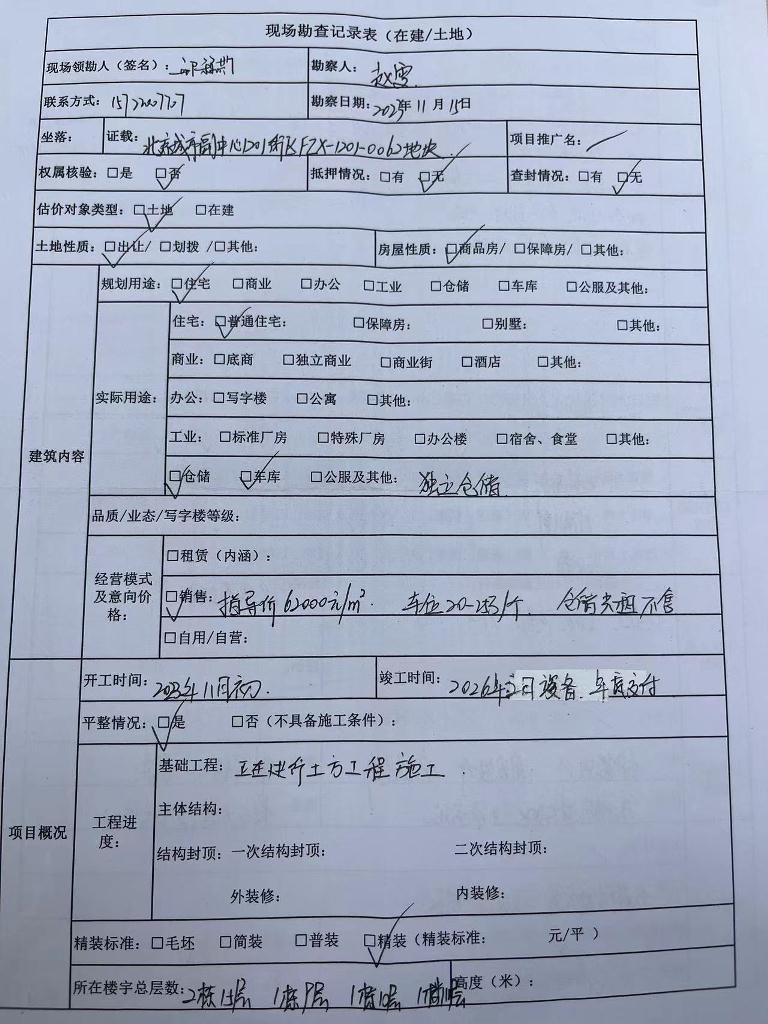 现场勘查记录表（在建/土地）
现场领勘人（签名）： 勘察人：
联系方式： 勘察日期：2023年11月15日
坐落： 证载：北京城市副中心1201街区FZX-1201-0062地块 项目推广名：
权属核验：□是 □否 抵押情况：□有 □无 查封情况：□有 □无
估价对象类型：□土地 □在建
土地性质：□出让/ □划拨 /□其他： 房屋性质：□商品房/ □保障房/ □其他：
建筑内容
规划用途：□住宅 □商业 □办公 □工业 □仓储 □车库 □公服及其他：
实际用途：
住宅：□普通住宅： □保障房： □别墅： □其他：
商业：□底商 □独立商业 □商业街 □酒店 □其他：
办公：□写字楼 □公寓 □其他：
工业：□标准厂房 □特殊厂房 □办公楼 □宿舍、食堂 □其他：
□仓储 □车库 □公服及其他：独立仓储
品质/业态/写字楼等级：
经营模式
及意向价
格：
□租赁（内涵）：
□销售：指导价62000元/m². 车位20-25万/个. 仓储只租不售
□自用/自营：
项目概况
开工时间：2023年11月初. 竣工时间：2026年 月设备、年底交付
平整情况：□是 □否（不具备施工条件）：
工程进
度：
基础工程：正在进行土方工程施工.
主体结构：
结构封顶：一次结构封顶： 二次结构封顶：
外装修： 内装修：
精装标准：□毛坯 □简装 □普装 □精装（精装标准： 元/平 ）
所在楼宇总层数： 高度（米）：